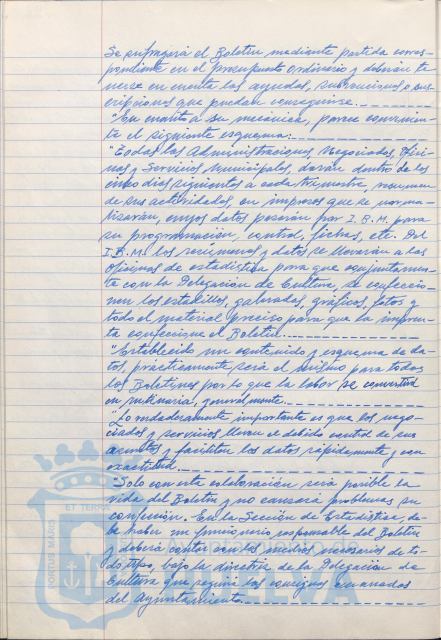 Se sufragará el Boletín mediante partida corres-
pondiente en el presupuesto Ordinario y deberán te
nerse en cuenta las ayudas, subvenciones o sus-
cripciones que puedan conseguirse.
"En cuanto a su mecánica, parece convenien-
te el siguiente esquema:
"Todas las Administraciones, Negociados, Ofici-
nas y Servicios Municipales, darán dentro de los
cinco días siguientes a cada trimestre, resumen
de sus actividades, en impresos que se norma-
lizarán, cuyos datos pasarán por I.B.M. para
su programación, control, fichas, etc. Del
I.B.M. los resúmenes y datos se llevarán a las
Oficinas de estadística para que conjuntamen-
te con la Delegación de Cultura, se confeccio-
nen los estadillos, grabados, gráficos, fotos y
todo el material preciso para que la impren-
ta confeccione el Boletín.
"Establecido un contenido y esquema de da-
tos, prácticamente será el mismo para todos
los Boletines por lo que la labor se convertirá
en rutinaria, generalmente.
"Lo verdaderamente importante es que los nego-
ciados y servicios lleven el debido control de sus
asuntos y faciliten los datos rápidamente y con
exactitud.
"Solo con esta colaboración será posible la
vida del Boletín y no causará problemas su
confección. En la Sección de Estadística, de-
be haber un funcionario responsable del Boletín
y deberá contar con los medios necesarios de to-
do tipo, bajo la directriz de la Delegación de
Cultura que seguirá las consignas emanadas
del Ayuntamiento.
PORTUS MARIS
ET TERRA